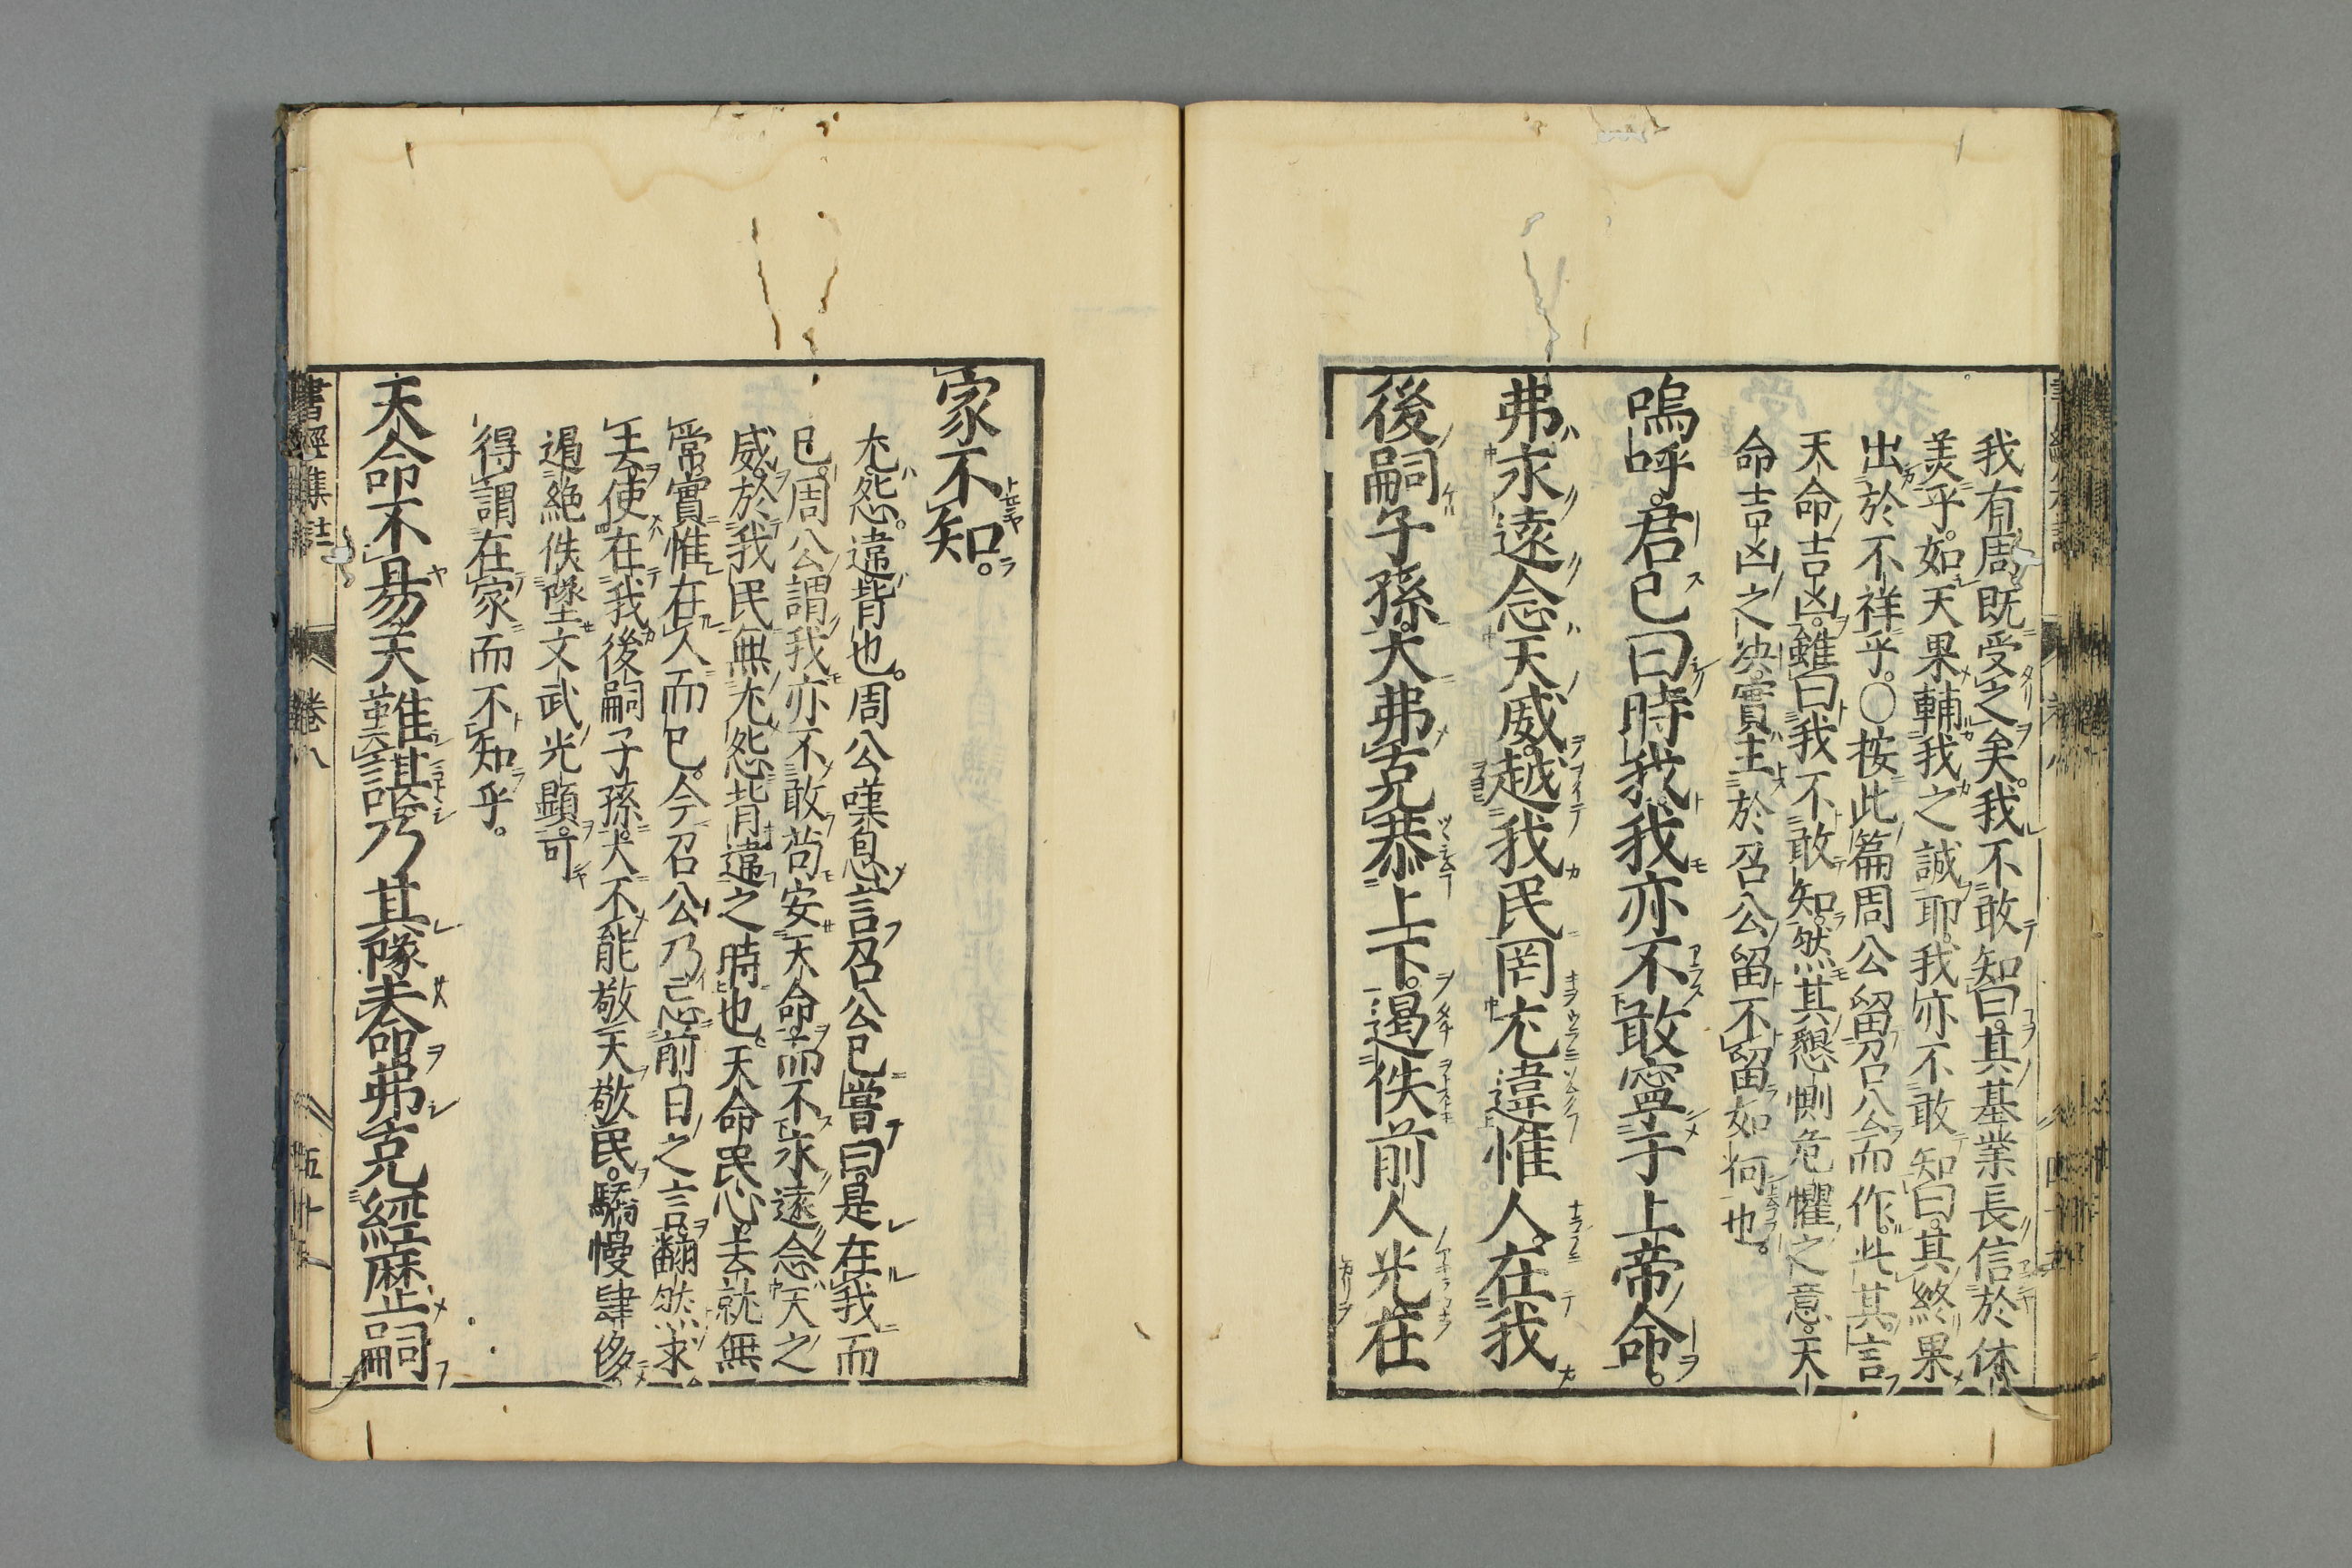 我有周。既受之矣。我不敢知曰。其基業長信於休
美乎。如天果輔我之誠耶。我亦不敢知曰。其終果
出於不祥乎。○按此篇周公留召公而作。此其言
天命吉凶。雖曰我不敢知。然其懇惻危懼之意。天
命吉凶之决。實主於召公留不留如何也。
嗚呼。君已曰時我。我亦不敢寧于上帝命。
弗永遠念天威。越我民罔尤違惟人。在我
後嗣子孫。大弗克恭上下。遏佚前人光在
家不知。
尤怨。違背也。周公嘆息言召公已嘗曰。是在我而
已。周公謂我亦不敢苟安天命。而不永遠念天之
威。於我民無尤怨背違之時也。天命民心。去就無
常。實惟在人而已。今召公乃忘前日之言。翻然求
去。使在我後嗣子孫。大不能敬天敬民。驕慢肆侈。
遏絶佚墜文武光顯。可
得謂在家而不知乎。
天命不易天難諶。乃其隊命弗克經歷嗣
書經集註
卷八
五十